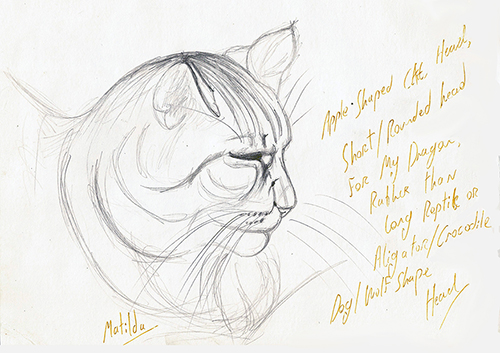 Apple-Shaped Cat Head,
Short/Rounded head
For My Dragon,
Rather than
Long Reptile or
Aligator/Crocodile
Dog/Wolf Shape
Head
Matilda